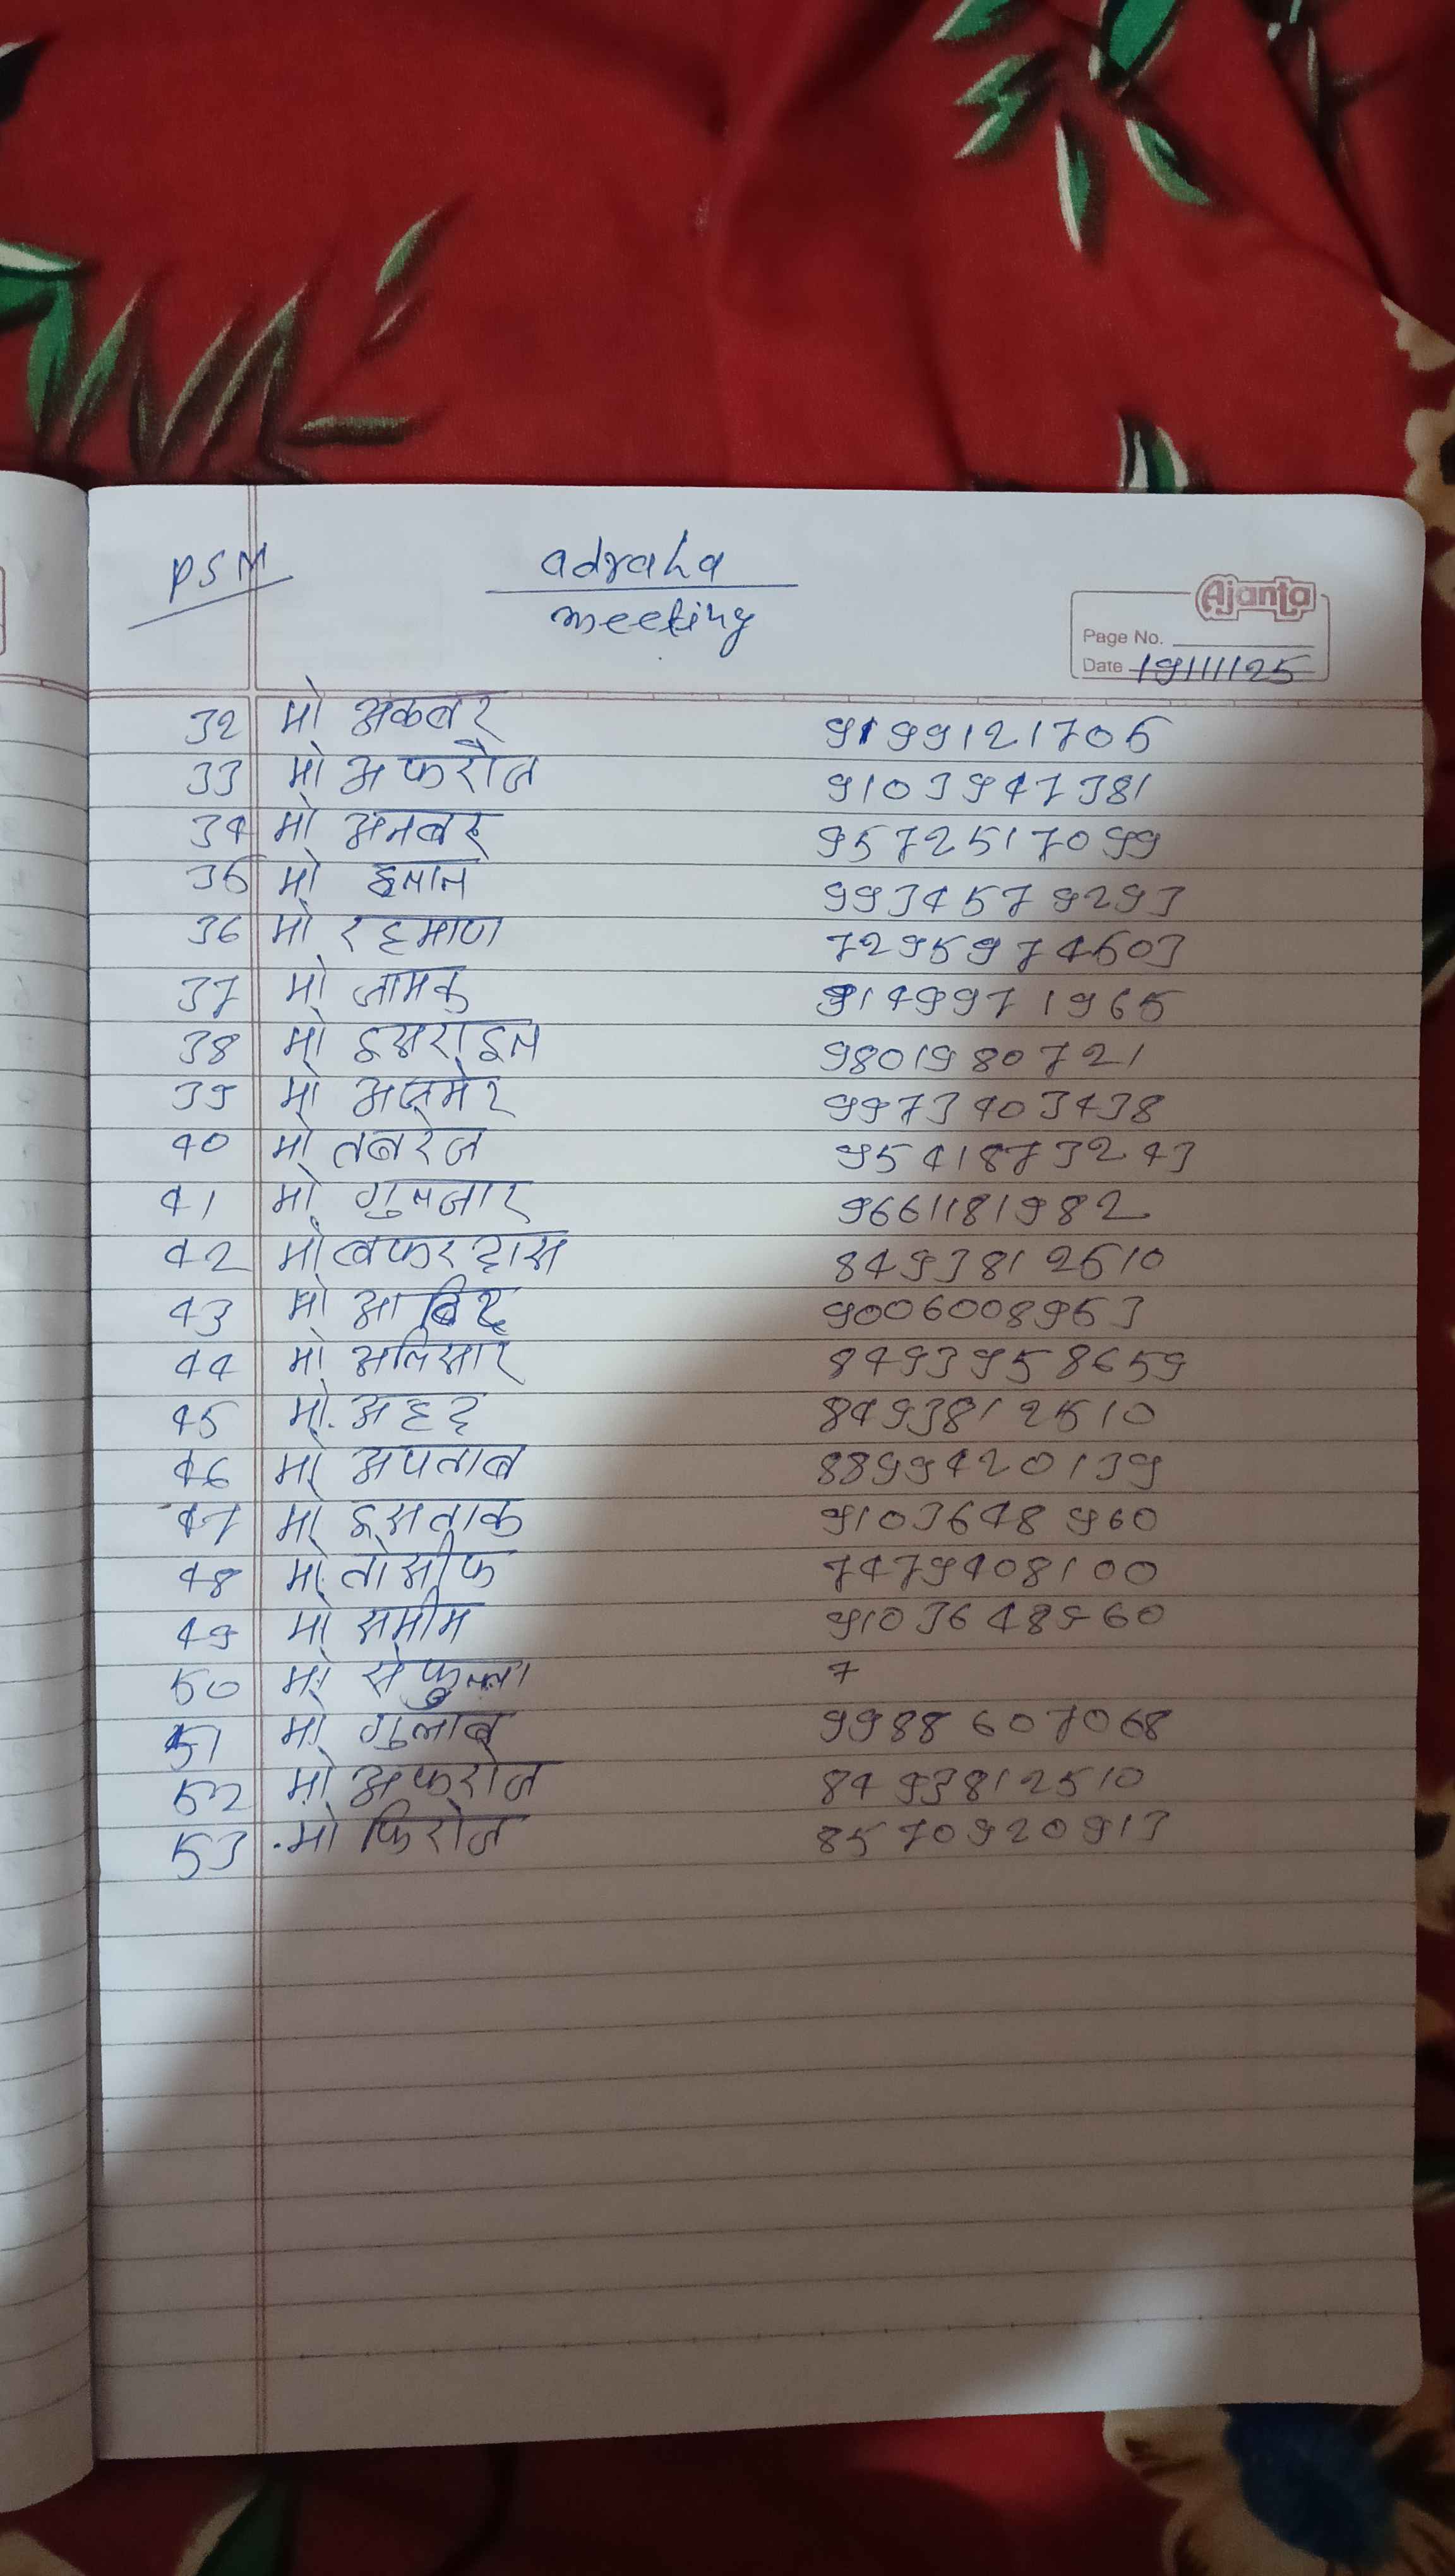 PSM
adraha
meeting
Ajanta
Page No.
Date 19/11/25
32 मो अकबर 9199121706
33 मो अफरौज 9103947381
34 मो अनबर 9572517099
35 मो इनान 9934579293
36 मो रहमाण 7295974603
37 मो जामक 9149971965
38 मो इसराइल 9801980721
39 मो अजमेर 9973403438
40 मो तबरेज 9541873243
41 मो गुलजार 9661181982
42 मो बफरहास 8493812510
43 मो आबिद 9006008953
44 मो अलिसार 8493958659
45 मो. अहद 8493812510
46 मो अपताब 8899420139
47 मो इसताक 9103648960
48 मो तोसीफ 7479408100
49 मो समीम 9103648960
50 मो सेफुल्ला 7
51 मो गुलाब 9988607068
52 मो अफरोज 8493812510
53 मो फिरोज 8570920913